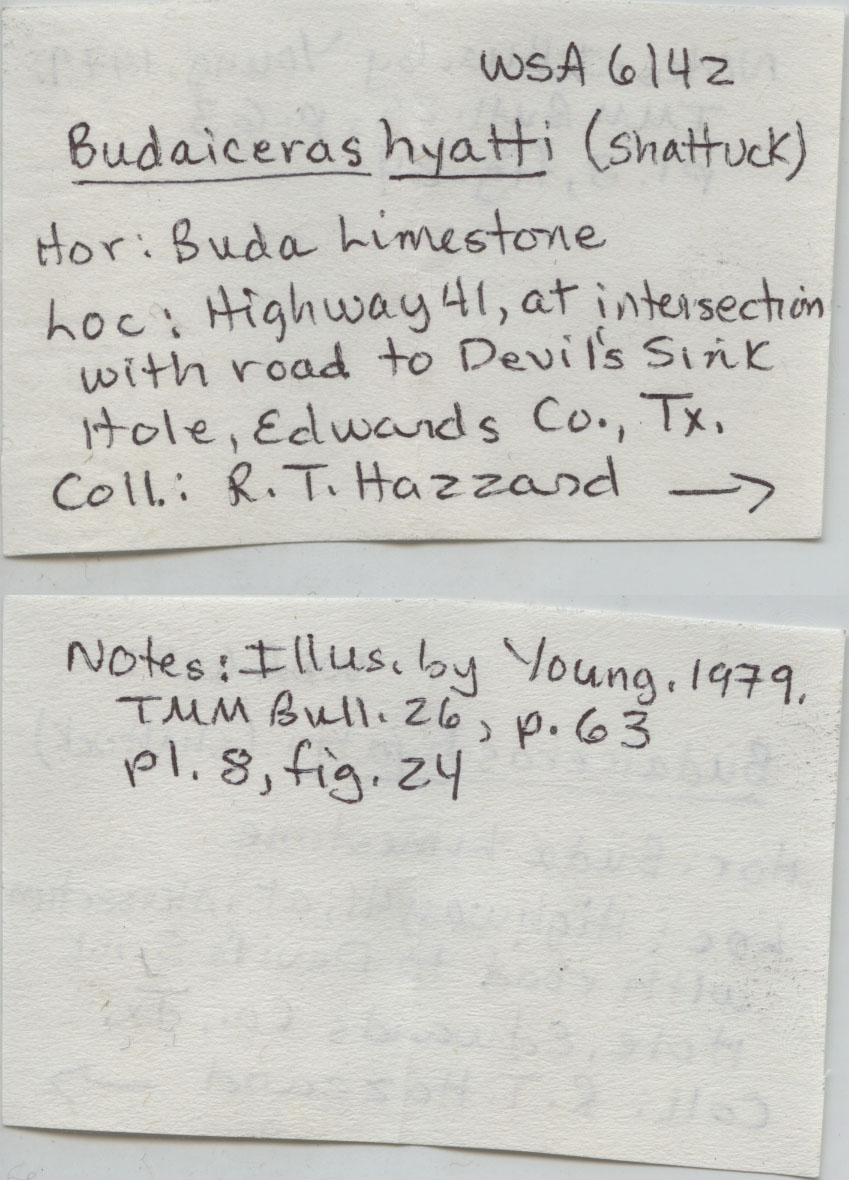 WSA 6142
Budaiceras hyatti (Shattuck)
Hor: Buda Limestone
Loc: Highway 41, at intersection
with road to Devil's Sink
Hole, Edwards Co., Tx.
Coll.: R.T. Hazzard →
Notes: Illus. by Young. 1979.
TMM Bull. 26, p. 63
pl. 8, fig. 24